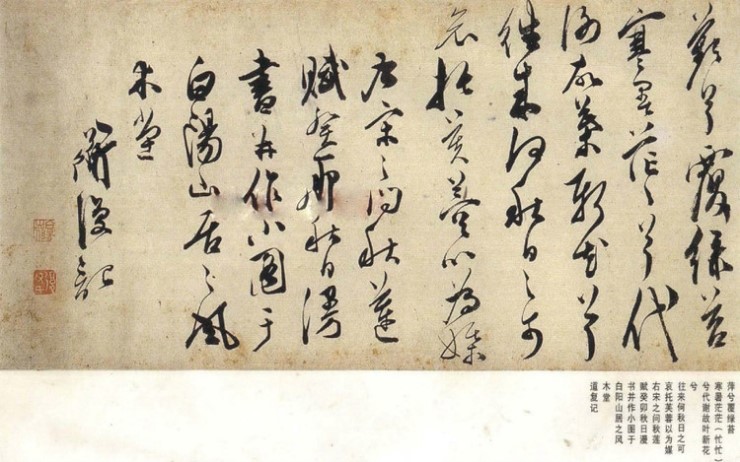 兮覆緑苔
寒暑茫々兮代
謝故葉新花兮
往來何秋日之可
哀托芙蓉以為媒
右宋之問秋蓮
賦癸卯秋日漫
書并作小圖于
白陽山居之風
木堂
道復記
萍兮覆绿苔
寒暑茫茫（忙忙）
兮代谢故叶新花
兮
往来何秋日之可
哀托芙蓉以为媒
右宋之问秋莲
赋癸卯秋日漫
书并作小图于
白阳山居之风
木堂
道复记